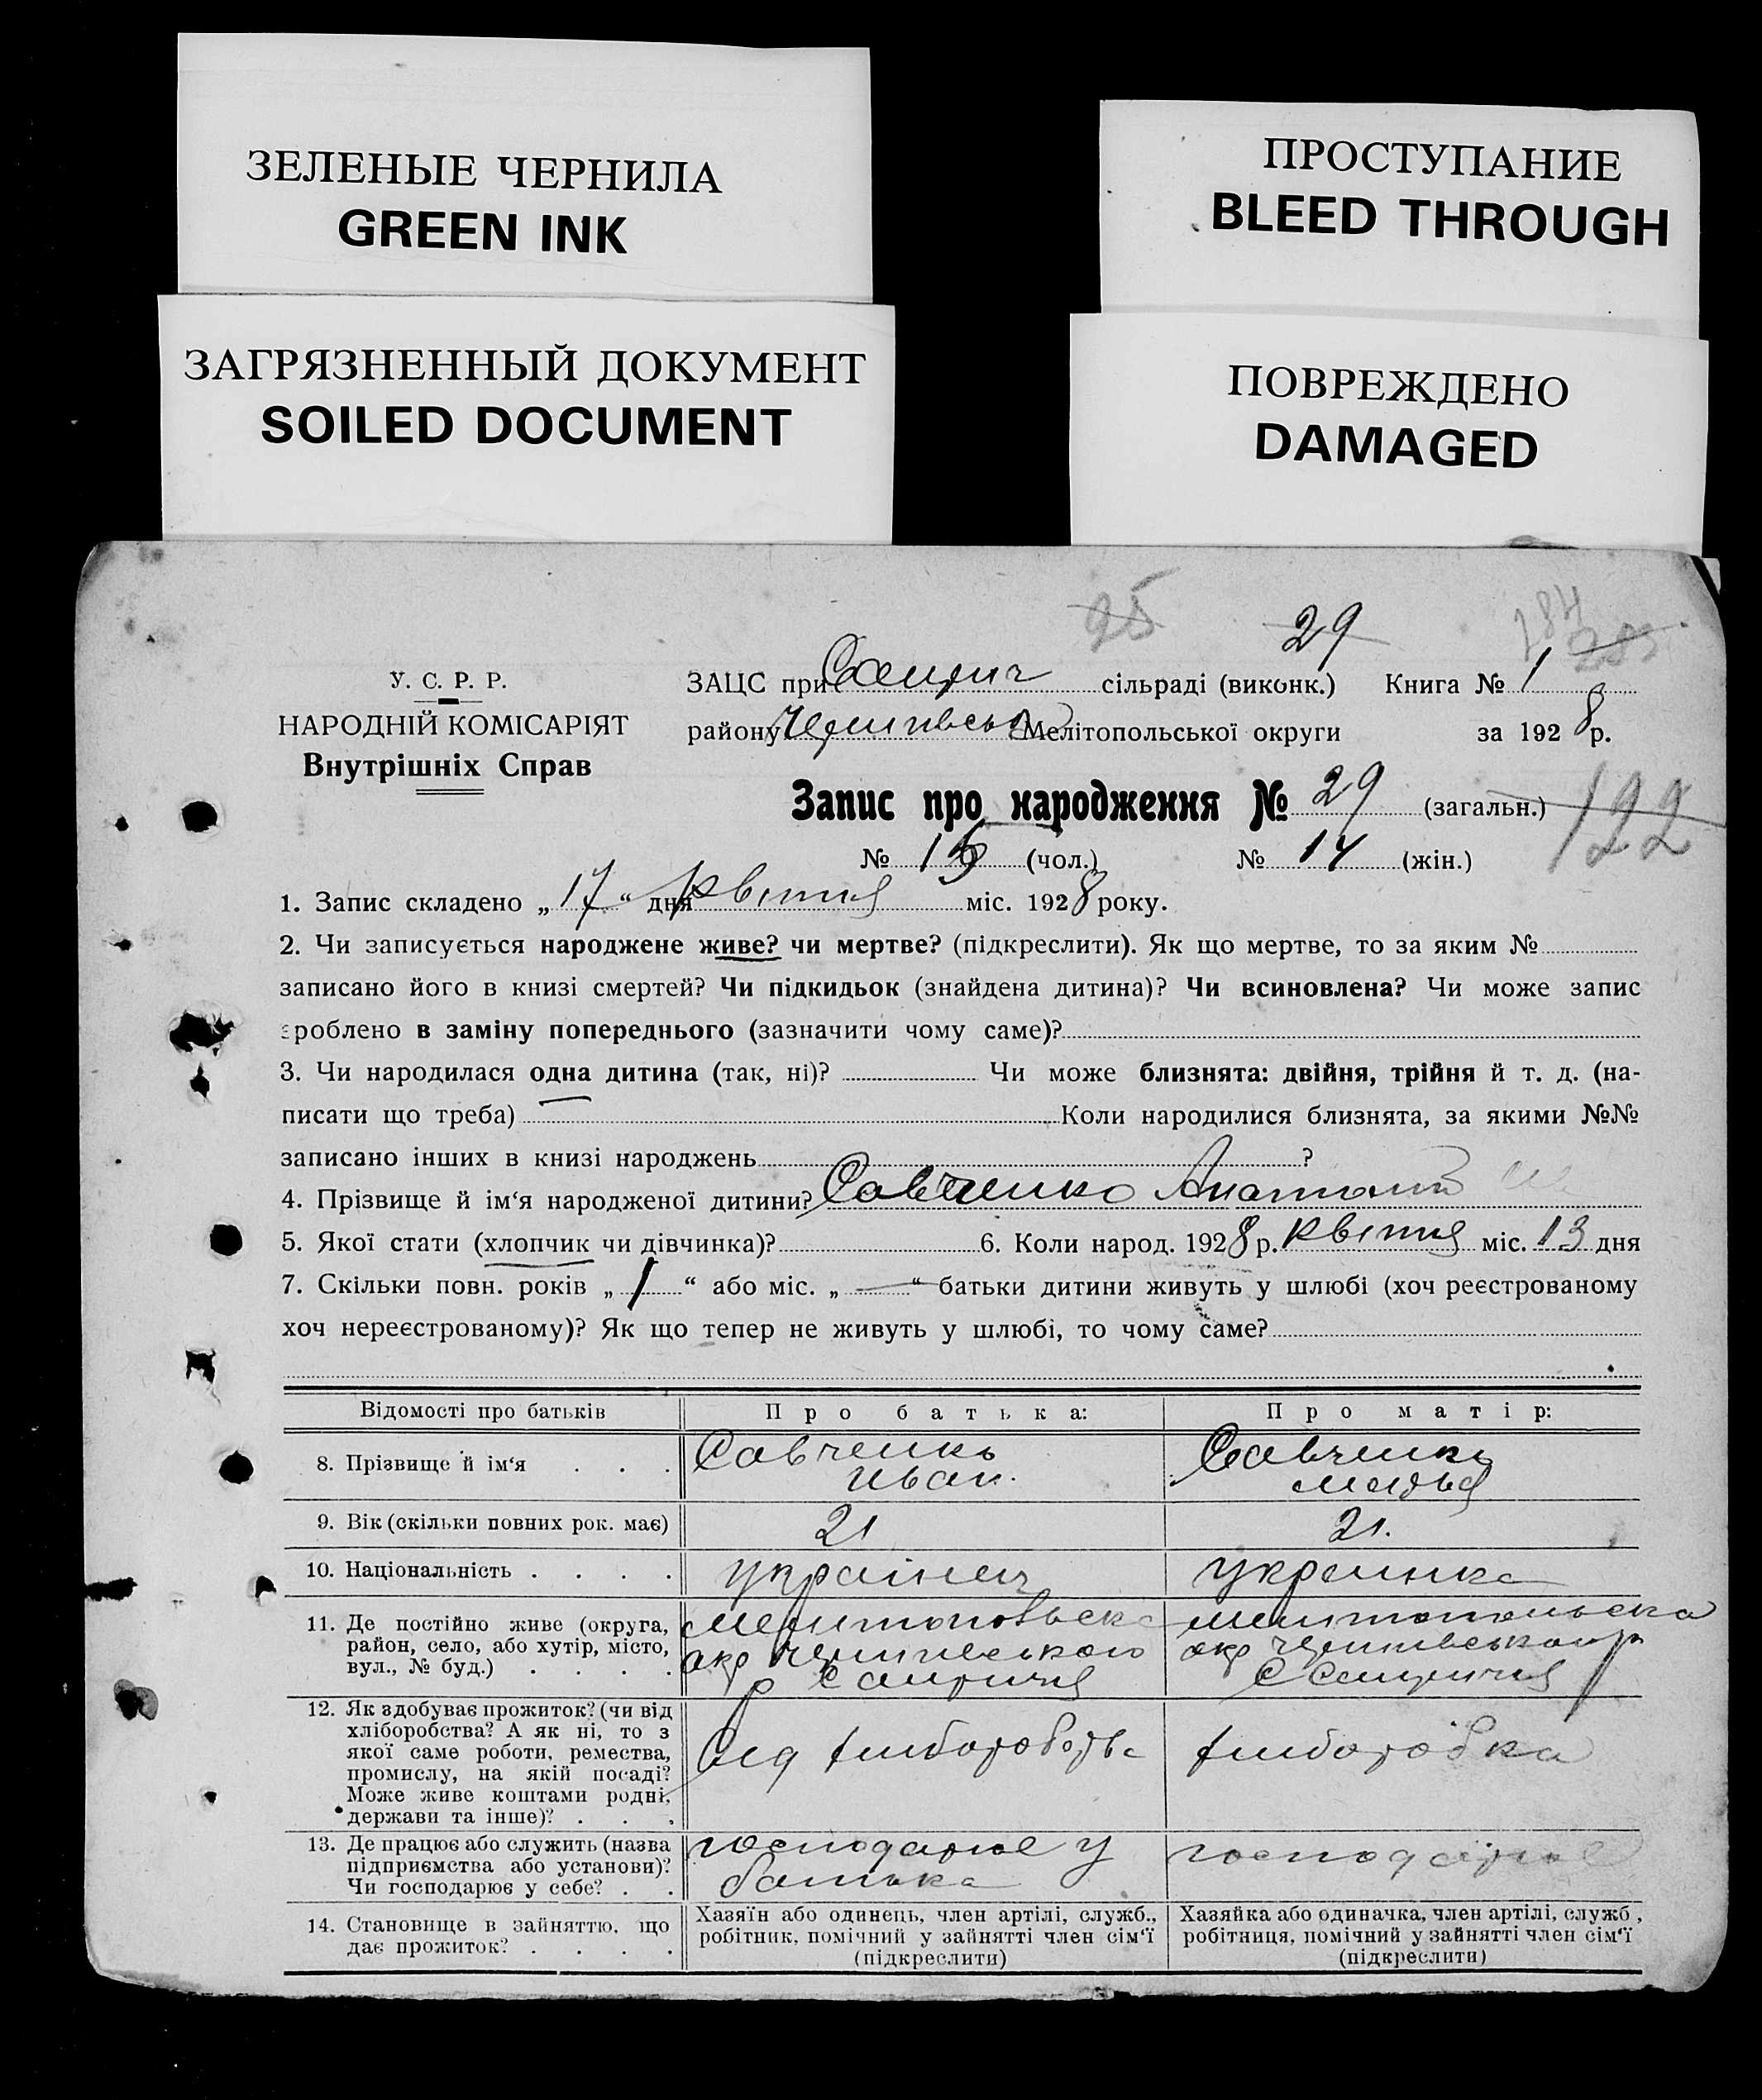 ЗЕЛЕНЫЕ ЧЕРНИЛА
GREEN INK
ПРОСТУПАНИЕ
BLEED THROUGH
ЗАГРЯЗНЕННЫЙ ДОКУМЕНТ
SOILED DOCUMENT
ПОВРЕЖДЕНО
DAMAGED
25 29
У. С. Р. Р.
НАРОДНІЙ КОМІСАРІЯТ
Внутрішніх Справ
ЗАЦС при сільраді (виконк.) Книга № 1
району Мелітопольської округи за 1928 р.
Запис про народження № 29 (загальн.) 122
№ 15 (чол.) № 14 (жін.)
1. Запис складено „17“ дня квітня міс. 1928 року.
2. Чи записується народжене живе? чи мертве? (підкреслити). Як що мертве, то за яким №
записано його в книзі смертей? Чи підкидьок (знайдена дитина)? Чи всиновлена? Чи може запис
зроблено в заміну попереднього (зазначити чому саме)?
3. Чи народилася одна дитина (так, ні)? Чи може близнята: двійня, трійня й т. д. (на-
писати що треба) Коли народилися близнята, за якими №№
записано інших в книзі народжень ?
4. Прізвище й ім‘я народженої дитини? Савченко Анатолій
5. Якої стати (хлопчик чи дівчинка)? 6. Коли народ. 1928 р. квітня міс. 13 дня
7. Скільки повн. років „1“ або міс. „—“ батьки дитини живуть у шлюбі (хоч реєстрованому
хоч нереєстрованому)? Як що тепер не живуть у шлюбі, то чому саме?
Відомості про батьків
Про батька:
Про матір:
8. Прізвище й ім‘я . . .
Савченко
Иван.
Савченко
9. Вік (скільки повних рок. має)
21
21.
10. Національність . . . .
українець
украинка
11. Де постійно живе (округа,
район, село, або хутір, місто,
вул., № буд.) . . . .
Мелітопольска
окр
р
мелитопольска
окр
с
12. Як здобуває прожиток? (чи від
хліборобства? А як ні, то з
якої саме роботи, ремества,
промислу, на якій посаді?
Може живе коштами родні,
держави та інше)? . . .
хліборобка
13. Де працює або служить (назва
підприємства або установи)?
Чи господарює у себе? . .
господарює у
батька
господарює
14. Становище в зайняттю, що
дає прожиток? . . . .
Хазяїн або одинець, член артілі, служб.,
робітник, помічний у зайнятті член сім‘ї
(підкреслити)
Хазяйка або одиначка, член артілі, служб.,
робітниця, помічний у зайнятті член сім‘ї
(підкреслити)